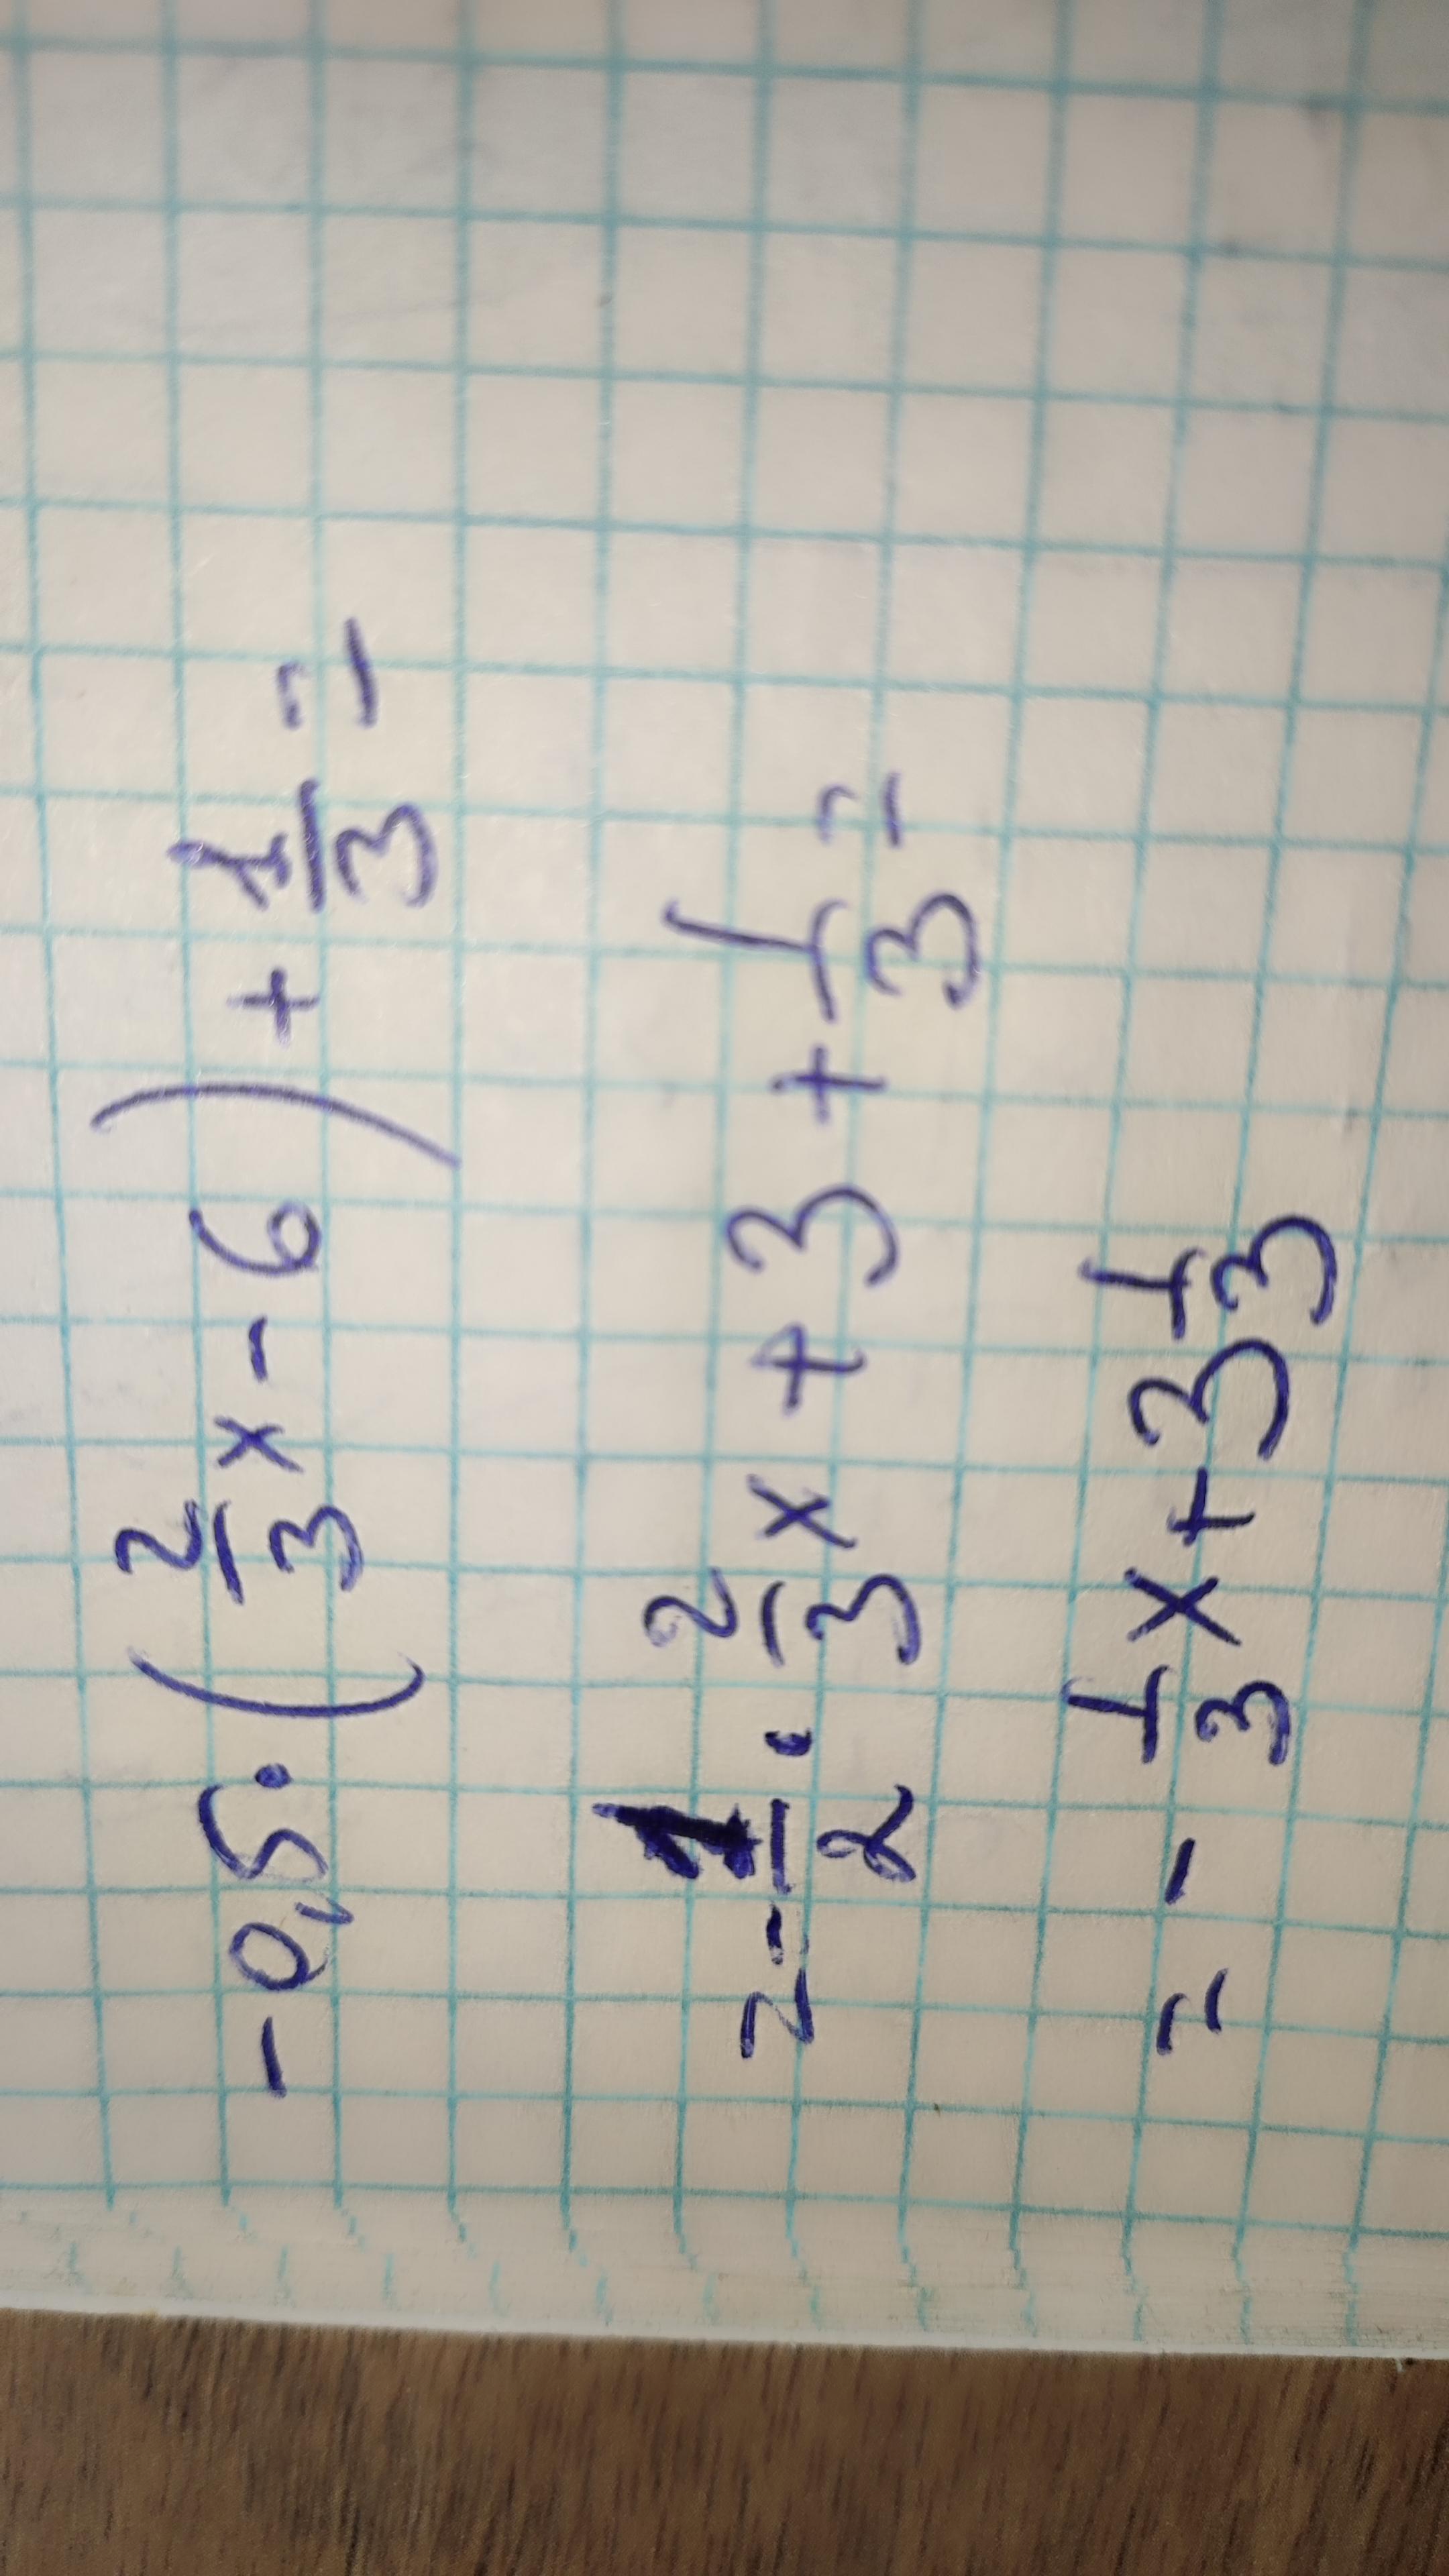 -0,5·(2/3 x - 6) + 1/3 =
= -1/2 · 2/3 x + 3 + 1/3 =
= - 1/3 x + 3 1/3